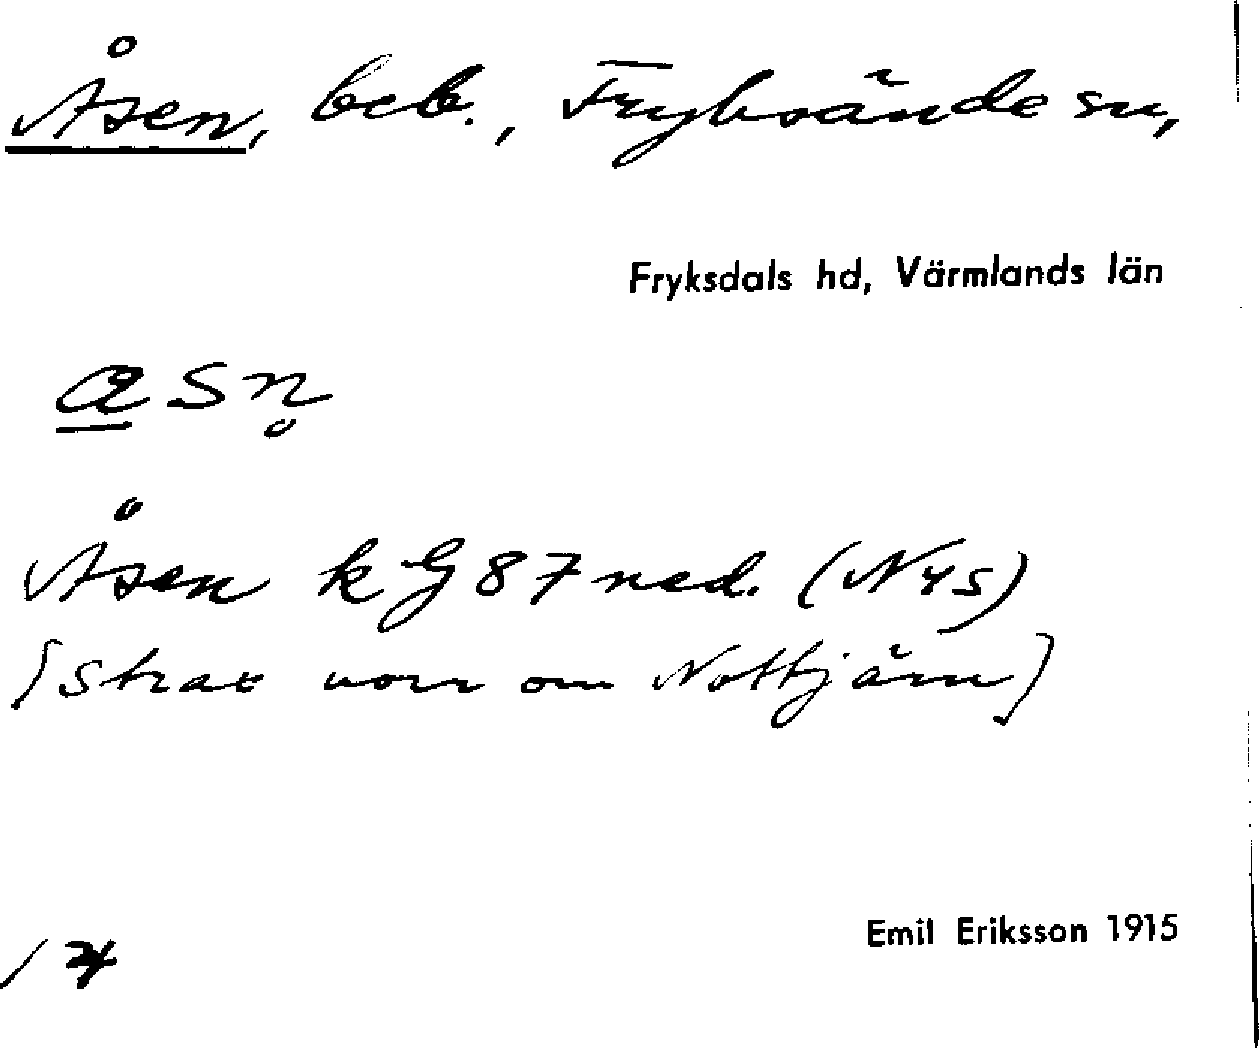 Åsen, beb., Fryksände sn,
Fryksdals hd, Värmlands län
a̲sn̥
Åsen k G 87 ned. (NYS)
(strax norr om Nottjärn)
Emil Eriksson 1915